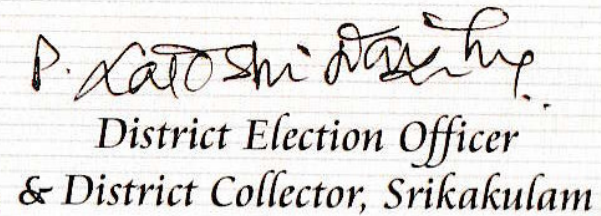 P.
District Election Officer
& District Collector, Srikakulam